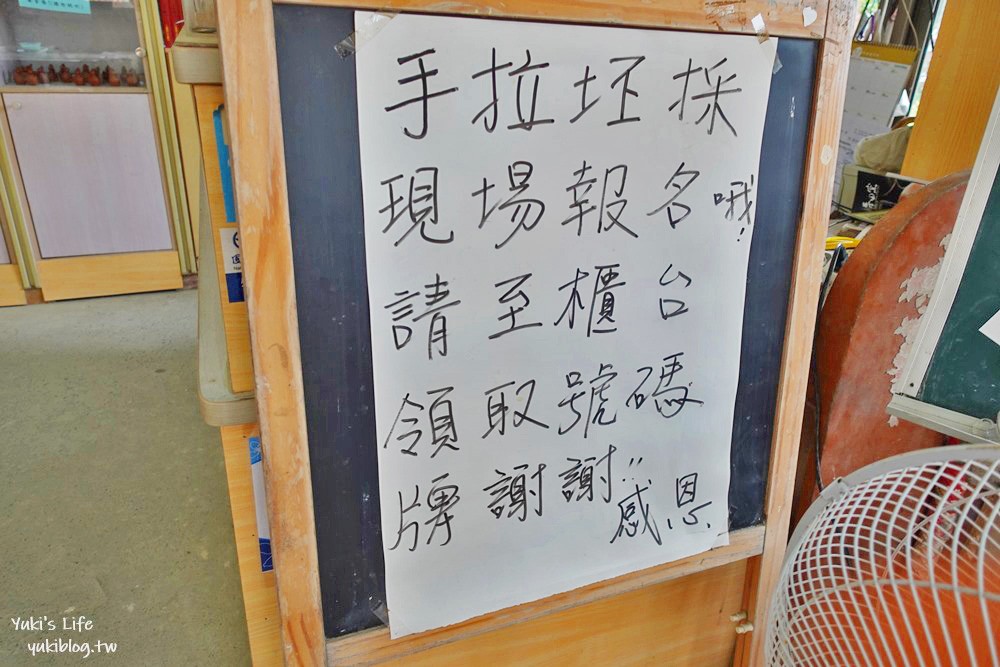 手拉坯採
現場報名哦!
請至櫃台
領取號碼
牌謝謝!!
感恩
Yuki's Life
yukiblog.tw